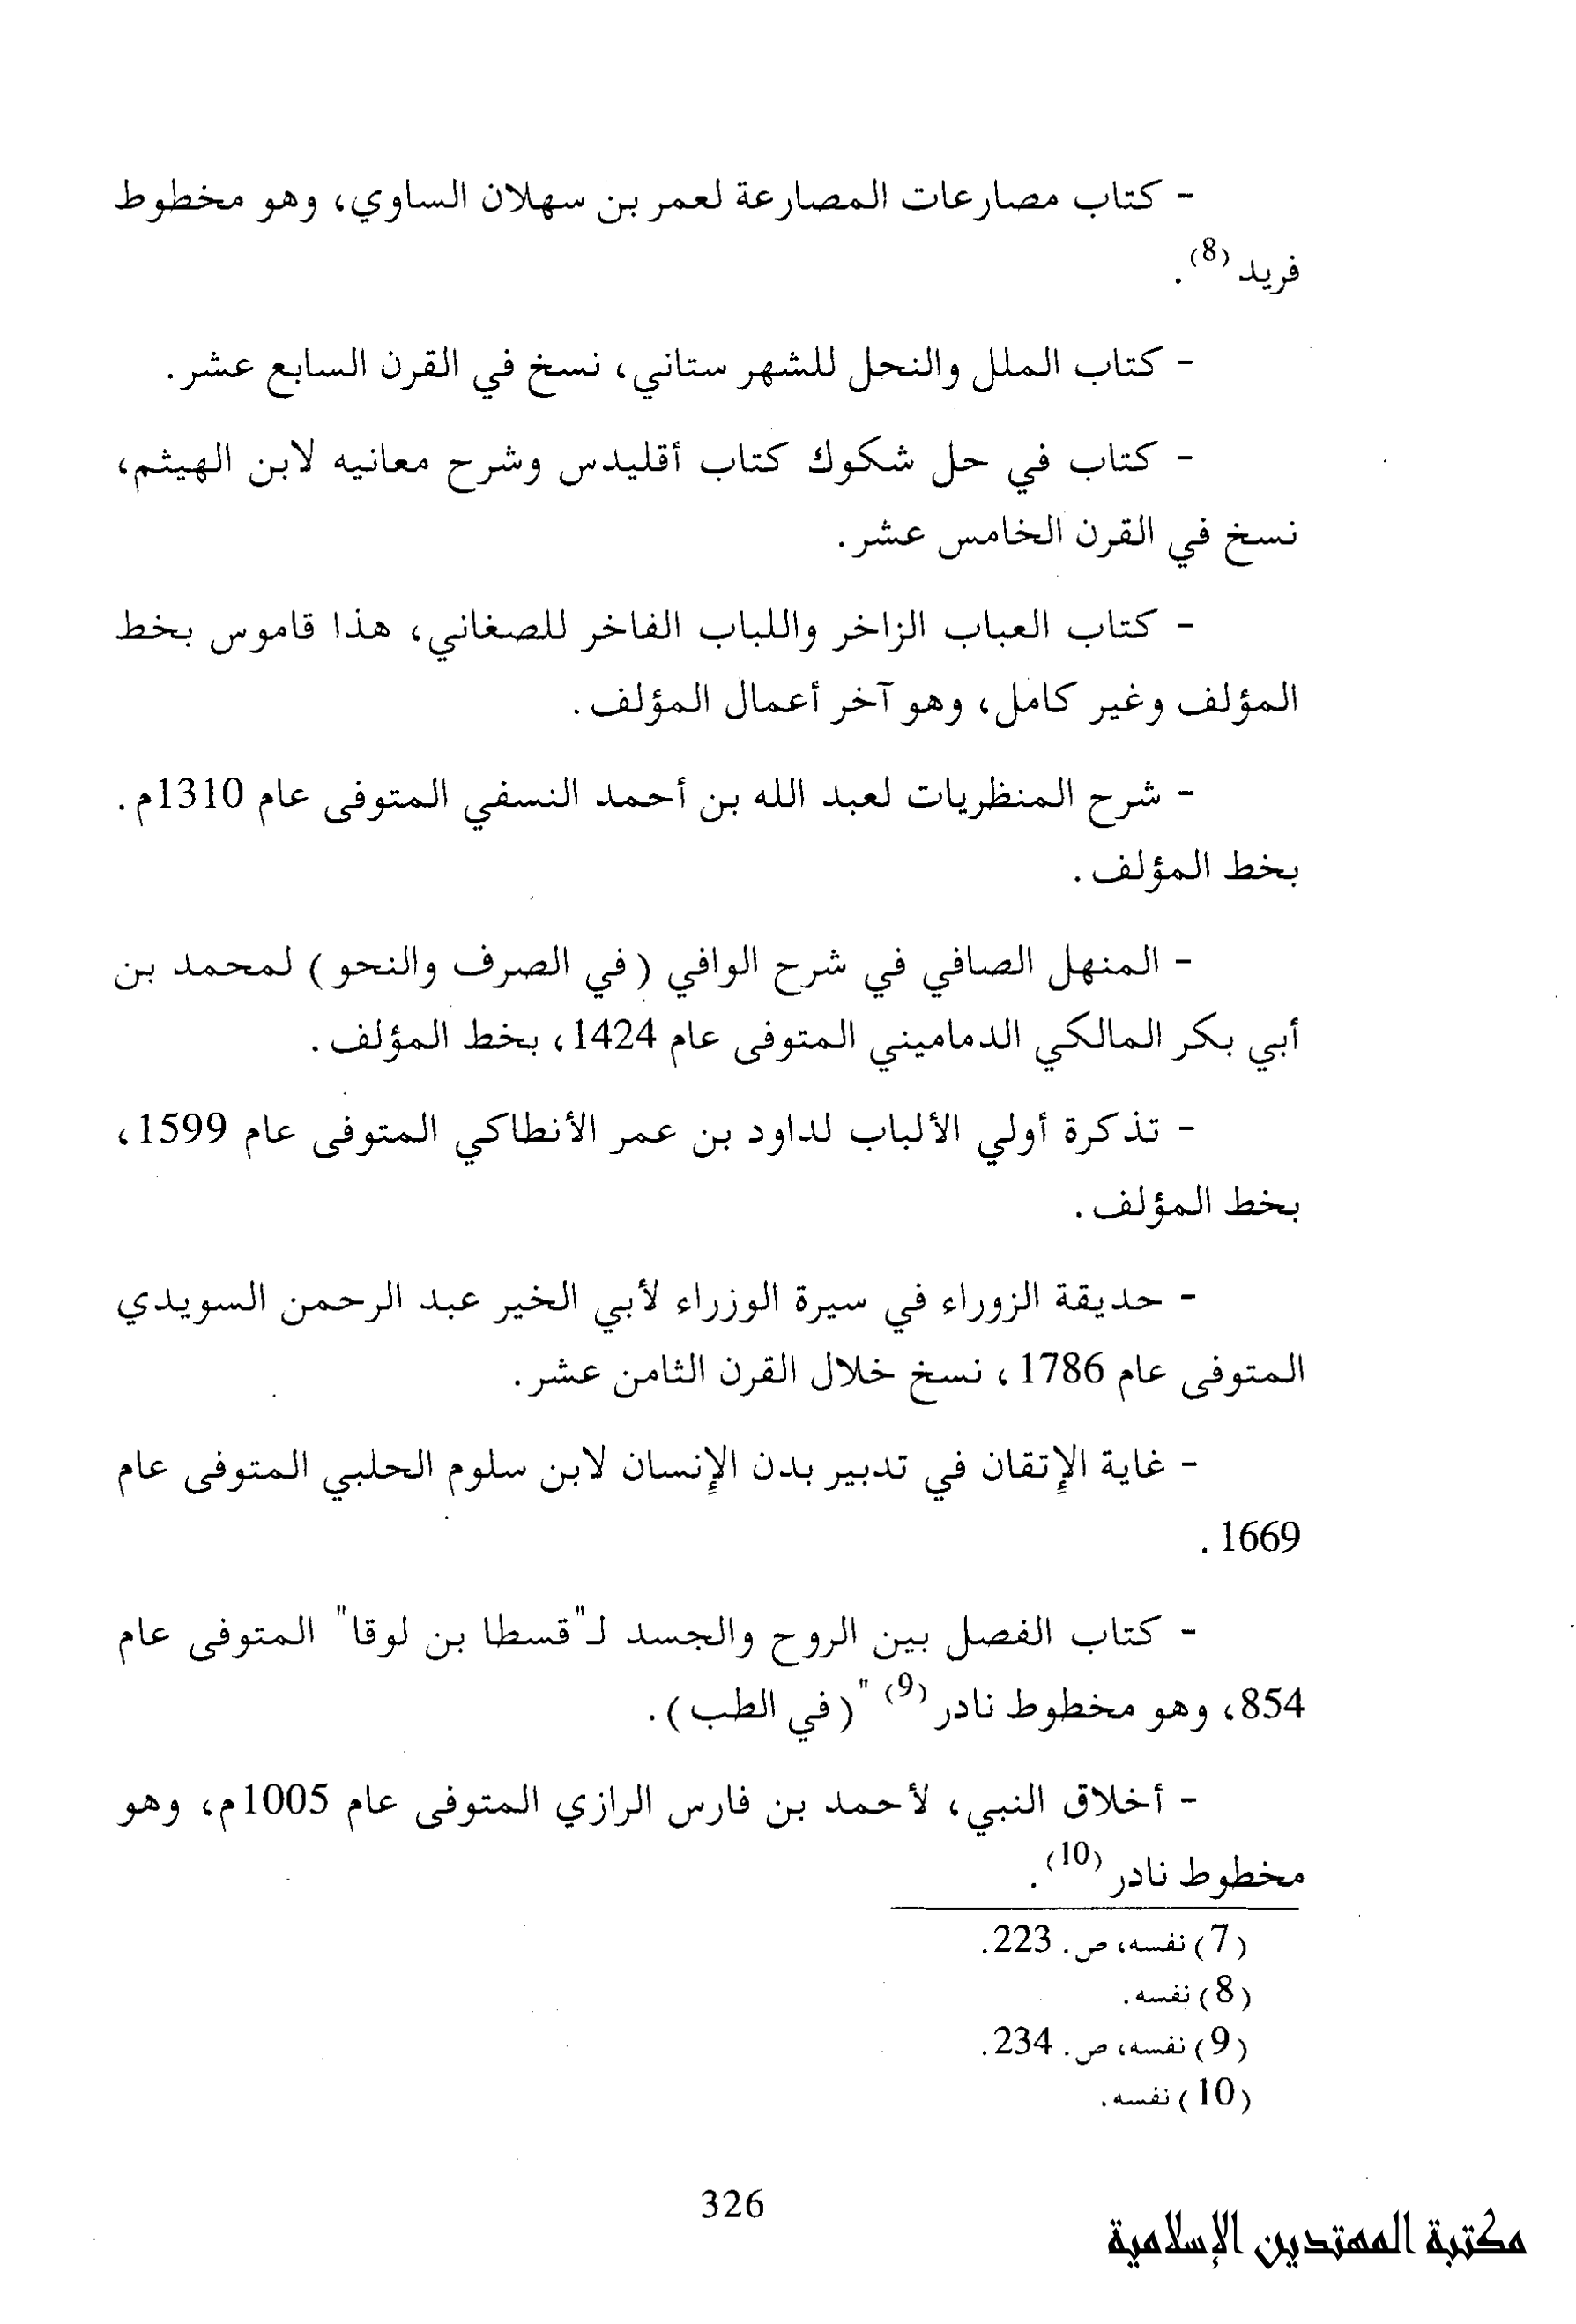 - كتاب مصارعات المصارعة لعمر بن سهلان الساوي، وهو مخطوط
فريد (8).
- كتاب الملل والنحل للشهر ستاني، نسخ في القرن السابع عشر.
- كتاب في حل شكوك كتاب أقليدس وشرح معانيه لابن الهيثم،
نسخ في القرن الخامس عشر.
- كتاب العباب الزاخر واللباب الفاخر للصغاني، هذا قاموس بخط
المؤلف وغير كامل، وهو آخر أعمال المؤلف.
- شرح المنظريات لعبد الله بن أحمد النسفي المتوفى عام 1310م.
بخط المؤلف.
- المنهل الصافي في شرح الوافي (في الصرف والنحو) لمحمد بن
أبي بكر المالكي الدماميني المتوفى عام 1424، بخط المؤلف.
- تذكرة أولي الألباب لداود بن عمر الأنطاكي المتوفى عام 1599،
بخط المؤلف.
- حديقة الزوراء في سيرة الوزراء لأبي الخير عبد الرحمن السويدي
المتوفى عام 1786، نسخ خلال القرن الثامن عشر.
- غاية الإتقان في تدبير بدن الإنسان لابن سلوم الحلبي المتوفى عام
1669.
- كتاب الفصل بين الروح والجسد لـ"قسطا بن لوقا" المتوفى عام
854، وهو مخطوط نادر (9) "(في الطب).
- أخلاق النبي، لأحمد بن فارس الرازي المتوفى عام 1005م، وهو
مخطوط نادر (10).
(7) نفسه، ص. 223.
(8) نفسه.
(9) نفسه، ص. 234.
(10) نفسه.
326
مكتبة المهتدين الإسلامية